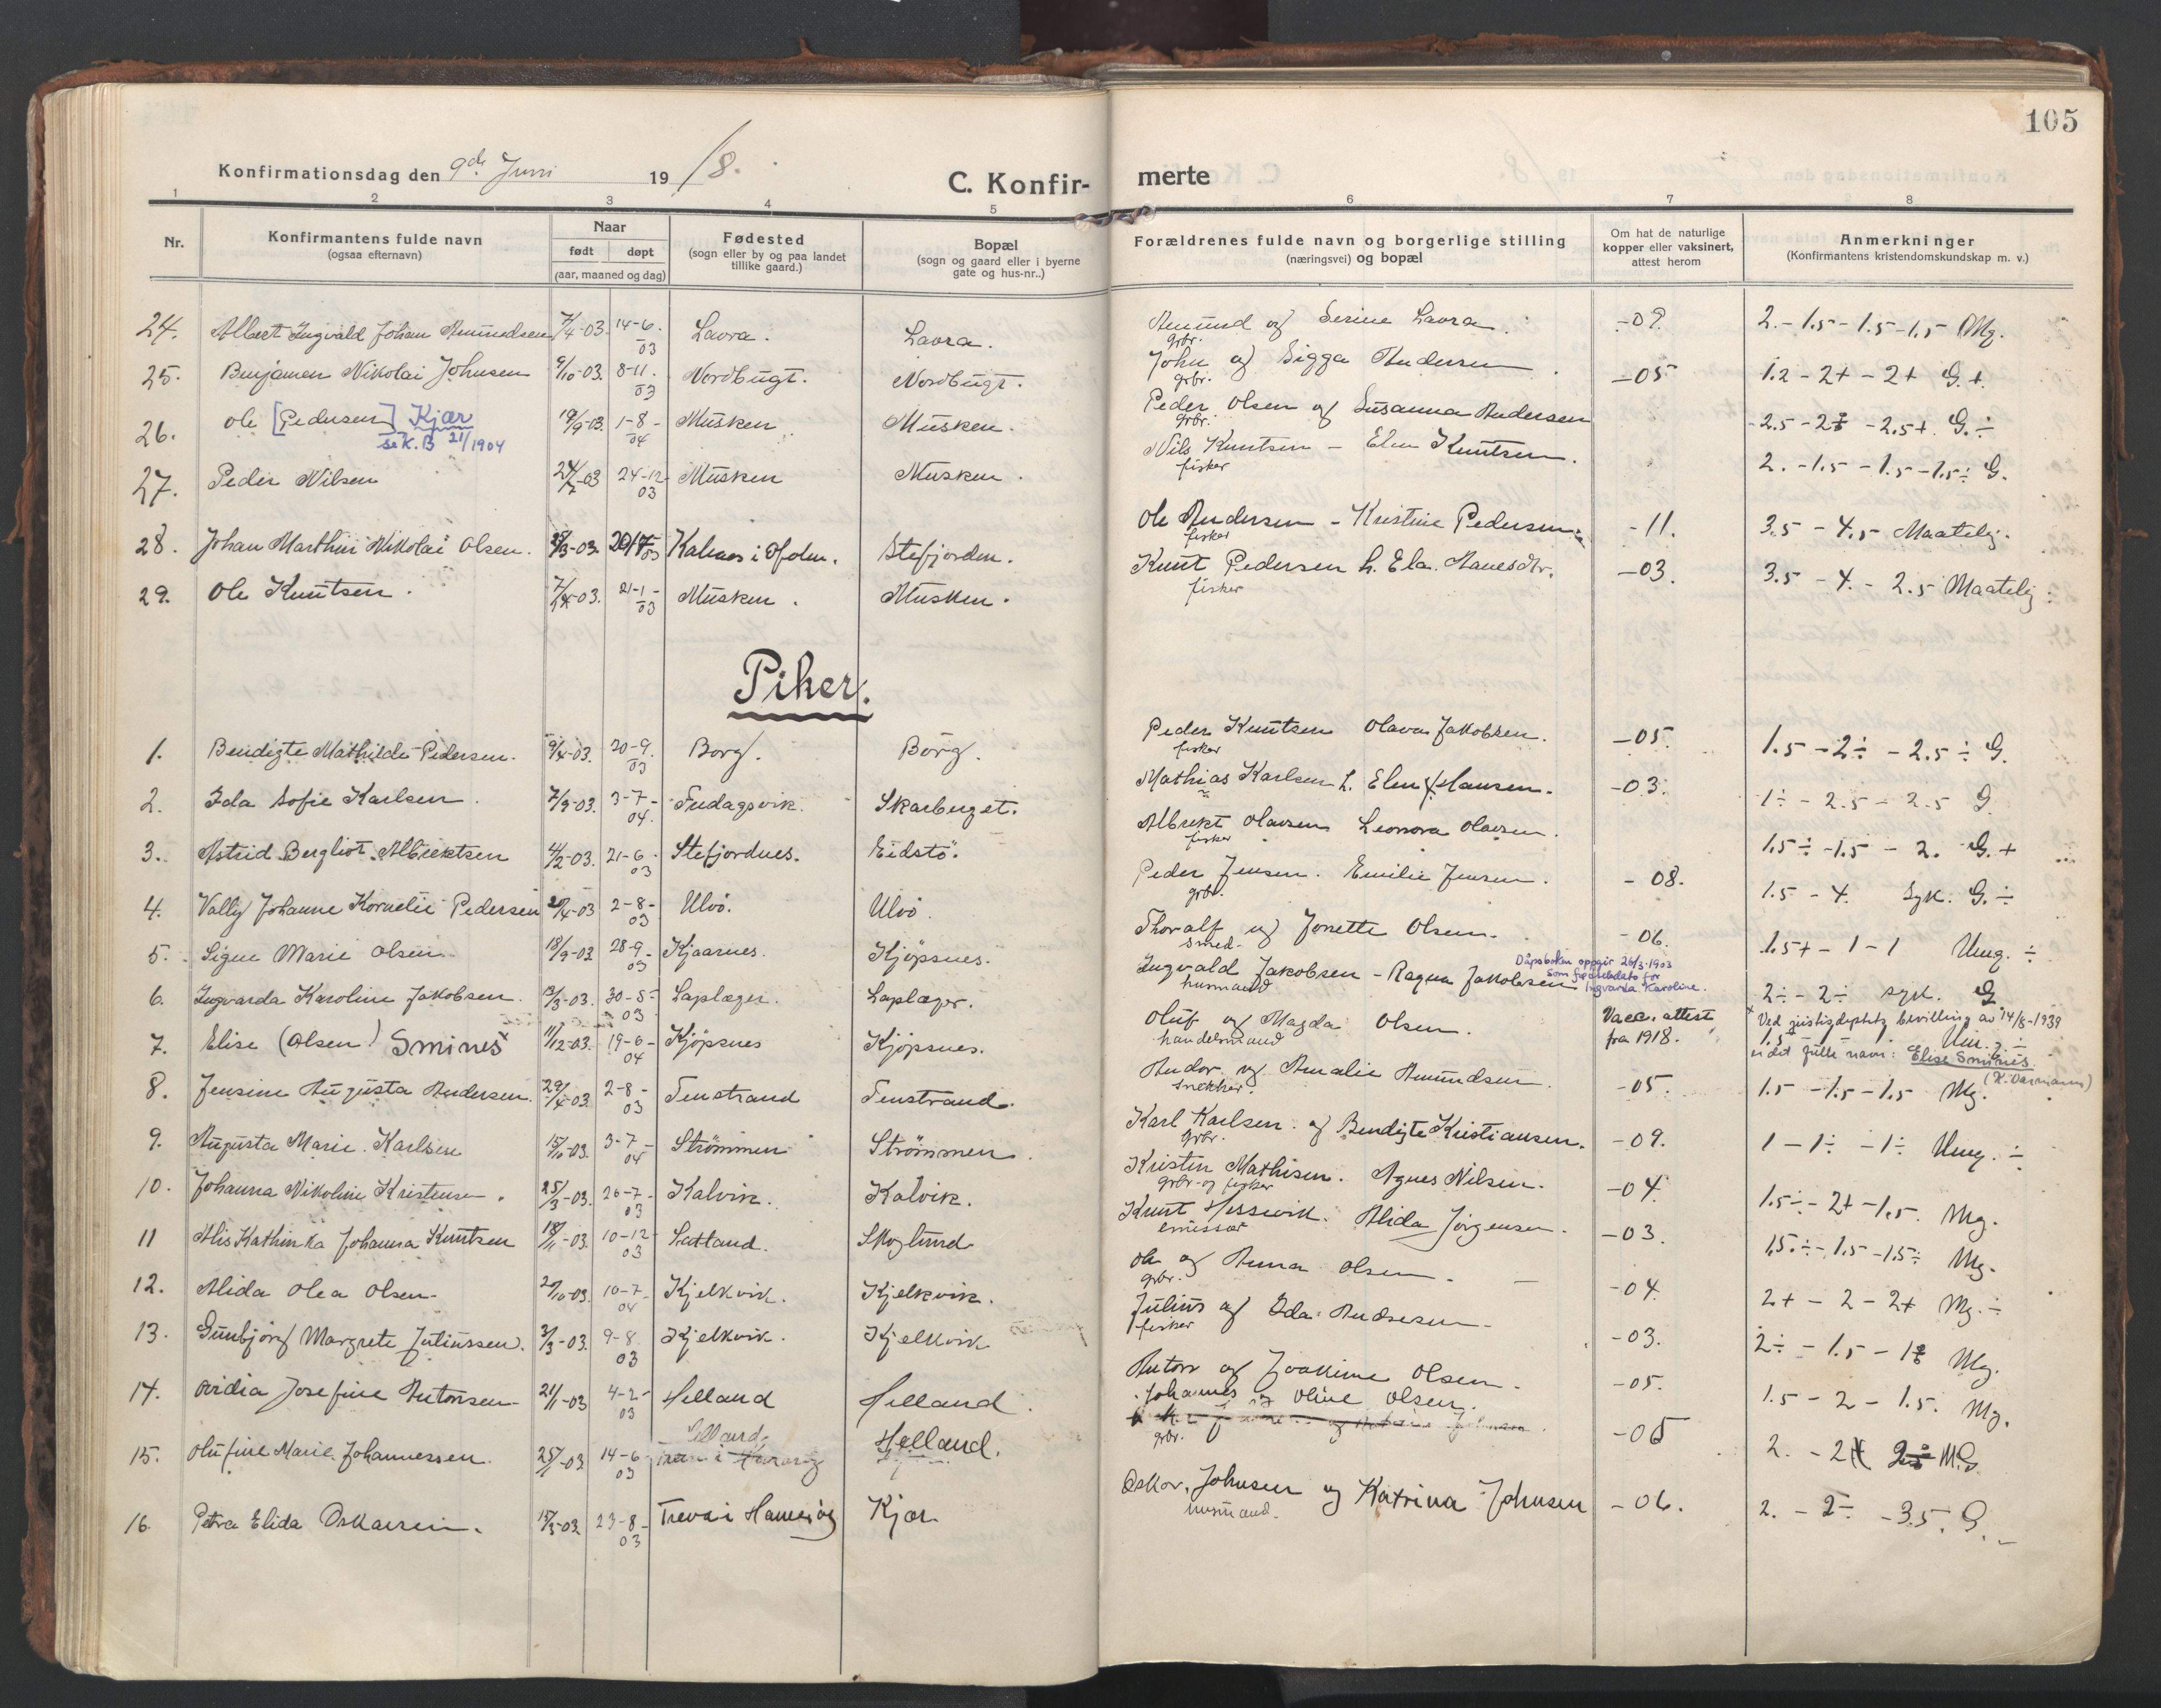 105
Konfirmationsdag den 9de Juni 1918.
C. Konfir- merte
1 2 3 4 5 6 7 8
Nr.
Konfirmantens fulde navn
(ogsaa efternavn)
Naar
født døpt
(aar, maaned og dag)
Fødested
(sogn eller by og paa landet
tillike gaard.)
Bopæl
(sogn og gaard eller i byerne
gate og hus-nr..)
Forældrenes fulde navn og borgerlige stilling
(næringsvei) og bopæl
Om hat de naturlige
kopper eller vaksinert,
attest herom
Anmerkninger
(Konfirmantens kristendomskundskap m. v.)
24. Albert Ingvald Johan Amundsen 7/4-03. 14-6-03 Lavra. Lavra. Amund og Serine Lavra. -09. 2.-1.5-1.5-1.5 Mg.
grbr.
25. Benjamen Nikolai Johnsen 9/10-03. 8-11-03 Nordbugt. Nordbugt. John og Sigga Andersen. -05 1.2-2+-2+ G.+
grbr.
26. Ole [Pedersen] Kjær 19/9-03. 1-8-04 Musken. Musken. Peder Olsen og Susanna Andersen 2.5 - - 2.5+. G.÷
se K.B 21/1904
grbr.
27. Peder Nilsen 24-12-03 Musken Musken. Nils Knutsen - Elen Knutsen. 2.-1.5-1.5-1.5÷ G.
fisker
28. Johan Marthin Nikolai Olsen. Kalnes i Ofoten. Stefjorden. Ole Andersen - Kristine Pedersen. -11. 3.5 - 4.5 Maatelig.
fisker
29. Ole Knutsen. 21-1-03 Musken. Musken. Knut Pedersen h. Ela Hanesdtr. -03. 3.5 - 4. - 2.5 Maatelig.
fisker
Piher.
1. Bendigte Mathilde Pedersen. 9/4-03. 20-9-03 Borg. Borg. Peder Knutsen Olava Jakobsen. -05. 1.5-2÷-2.5÷ G.
fisker
2. Ida Sofie Karlsen. 7/9-03. 3-7-04. Fudagsvik. Skarberget. Mathias Karlsen h. Elen Hansen. -03. 1÷ - 2.5 - 2.5 G
3. Astrid Bergliot Albrektsen 4/2-03. 21-6-03 Stefjordnes. Eidstö. Albrekt Olavsen Leonora Olavsen. 1.5÷-1.5 - 2. G.+
fisker
4. Vally Johanne Kornelie Pedersen 2-8-03 Ulvö. Ulvö. Peder Jensen. Emilie Jensen. - 08. 1.5 - 4. Syk. G.÷
grbr.
5. Signe Marie Olsen 18/9-03. 28-9-03 Kjaarnes. Kjöpsnes. Thoralf og Jonette Olsen. -06. 1.5+ - 1 - 1 Umg. ÷
smed.
Dåpsboken oppgir 26/3.1903
som fødselsdato for
Ingvarda Karoline.
6. Ingvarda Karoline Jakobsen. 30-8-03 Laplæger. Laplæger. Ingvald Jakobsen - Ragna Jakobsen 2÷ - 2÷ syk. G
husmand
7. Elise (Olsen) Sminesˣ 11/12-03. 19-6-04 Kjöpsnes Kjöpsnes. Oluf og Magda Olsen. Vacc. attest
handelsmand
fra 1918.
x Ved justisdeptets bevilling av 14/8-1939
er det fulle navn: Elise Smines.
8. Jensine Augusta Andersen. 29/4-03. 2-8-03 Tenstrand Tenstrand. Andor og Amalie Amundsen. -05. 1.5 -1.5 -1.5 Mg.
snekker.
9. Augusta Marie Karlsen 15/10-03. 3-7-04 Strömmen Strömmen. Karl Karlsen og Bendigte Kristiansen. -09. 1 - 1÷ - 1÷ Umg. ÷
grbr.
10. Johanna Nikoline Kristensen. 25/3-03. 26-7-03 Kalvik. Kalvik. Kristen Mathisen. Agnes Nilsen. -04. 1.5÷-2+-1.5. Mg.
grbr og fisker
11 Alis Kathinka Johanna Knutsen 18/11-03. 10-12-03 Sætland. Skoglund Knut Hessevik. Alida Jörgensen. -03. 1.5÷-1.5-1.5÷ Mg.
emissær
12. Alida Olea Olsen. 10-7-04 Kjelkvik. Kjelkvik. Ole og Anna Olsen. -04. 2+ - 2 - 2+ Mg.÷
grbr.
13. Gunbjörg Margrete Juliussen. 3/3-03. 9-8-03 Kjelkvik. Kjelkvik Julius og Ida Andersen. -03. 2÷ - 1.5 - Mg.
fisker
14. Ovidia Josefine Antonsen. 21/1-03 4-2-03 Helland Helland. Anton og Joakime Olsen. -05. 1.5 - 2 - 1.5. Mg.
15. Olufine Marie Johannessen. 25/1-03 14-6-03 Helland. Helland. Johannes og Oline Olsen. -05 2. - M.G.
grbr.
16. Petra Elida Oskarsen. 15/3-03 23-8-03 Treva i Hamarøy Kjær. Oskar Johnsen og Katrina Johnsen -06. 2. - 2÷ - 3.5. G.
husmand.